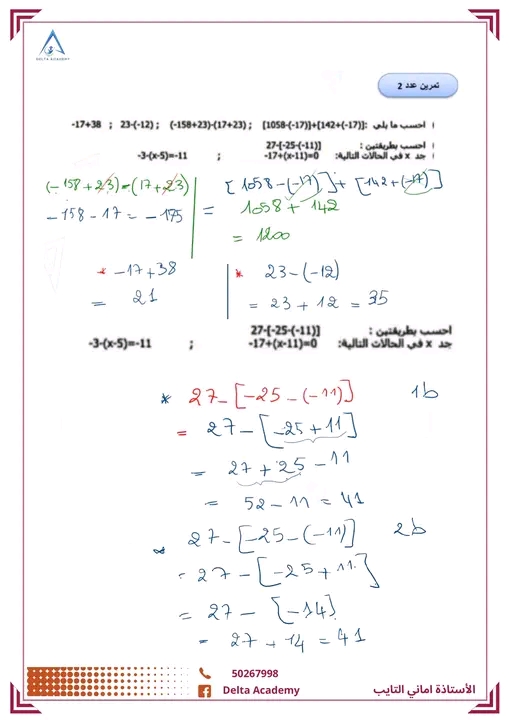 DELTA ACADEMY
تمرين عدد 2
احسب ما يلي : -17+38 ; 23-(-12) ; (-158+23)-(17+23) ; [1058-(-17)]+[142+(-17)]
احسب بطريقتين : 27-[-25-(-11)]
جد x في الحالات التالية: -17+(x-11)=0 ; -3-(x-5)=-11
(-158+23)-(17+23)
[1058-(-17)]+[142+(-17)]
-158-17=-175
= 1058+142
= 1200
* -17+38
= 21
* 23-(-12)
= 23+12 = 35
احسب بطريقتين : 27-[-25-(-11)]
جد x في الحالات التالية: -17+(x-11)=0 ; -3-(x-5)=-11
* 27-[-25-(-11)] 1b
= 27-[-25+11]
= 27+25-11
= 52-11=41
* 27-[-25-(-11)] 2b
= 27-[-25+11]
= 27-[-14]
= 27+14=41
50267998
Delta Academy
الأستاذة اماني التايب